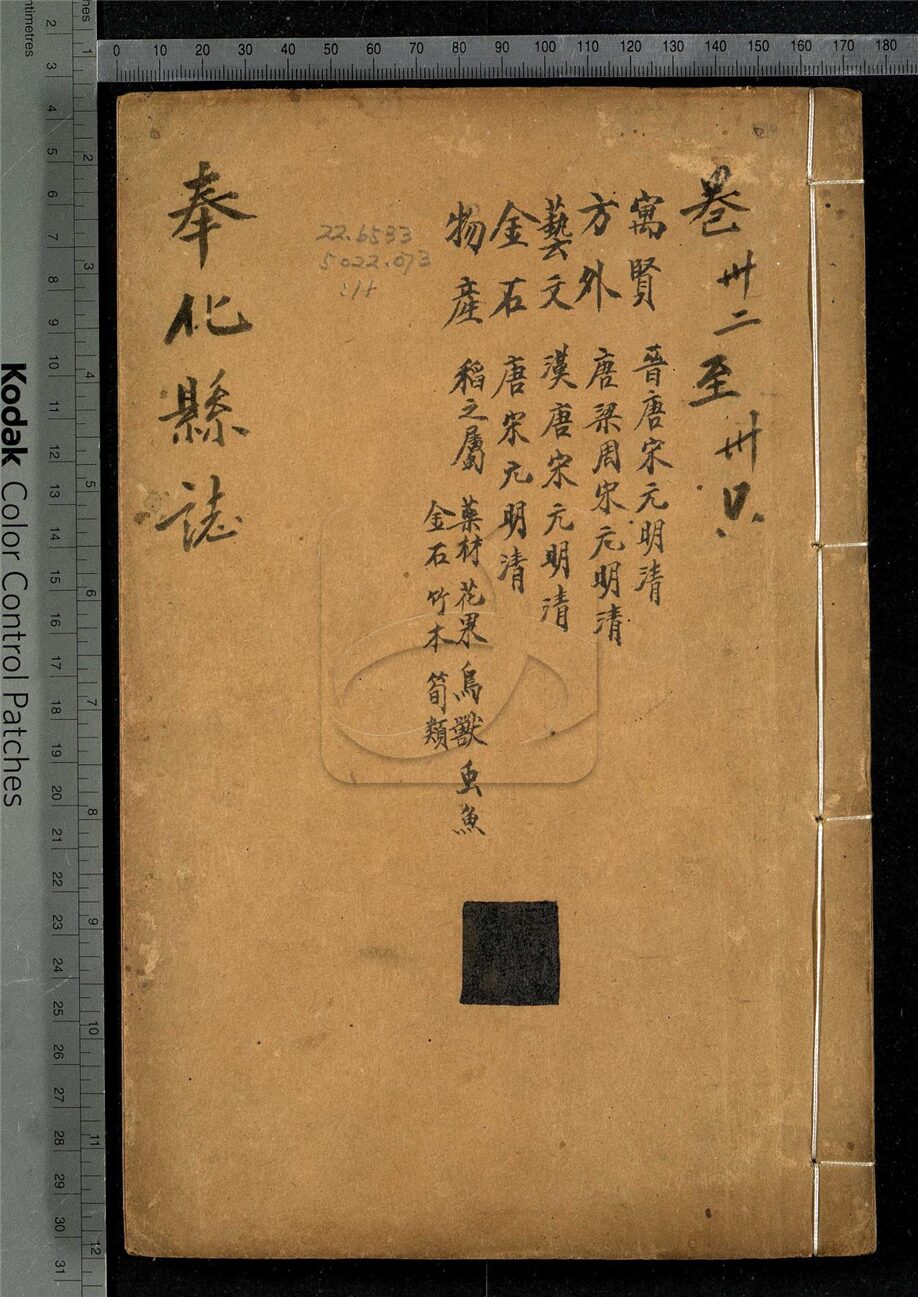 卷卅二至卅六
寓賢 晉唐宋元明清
方外 唐梁周宋元明清
藝文 漢唐宋元明清
金石 唐宋元明清
物產 稻之屬 藥材 花果 鳥獸 虫魚
金石 竹木 筍類
22.6533
5022.073
奉化縣誌
0 10 20 30 40 50 60 70 80 90 100 110 120 130 140 150 160 170 180
Kodak Color Control Patches
2 3 4 5 6 7 8 9 10 11 12 13 14 15 16 17 18 19 20 21 22 23 24 25 26 27 28 29 30 31
1 2 3 4 5 6 7 8 9 10 11 12